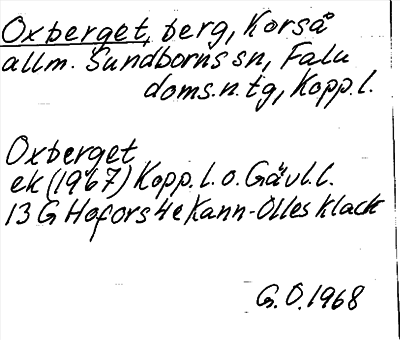 Oxberget, berg, Korså
allm. Sundborns sn, Falu
doms.n. tg, Kopp. l.
Oxberget
ek (1967) Kopp. l. o. Gävl. l.
13 G Hofors 4e Kann-Olles Klack
G.O. 1968